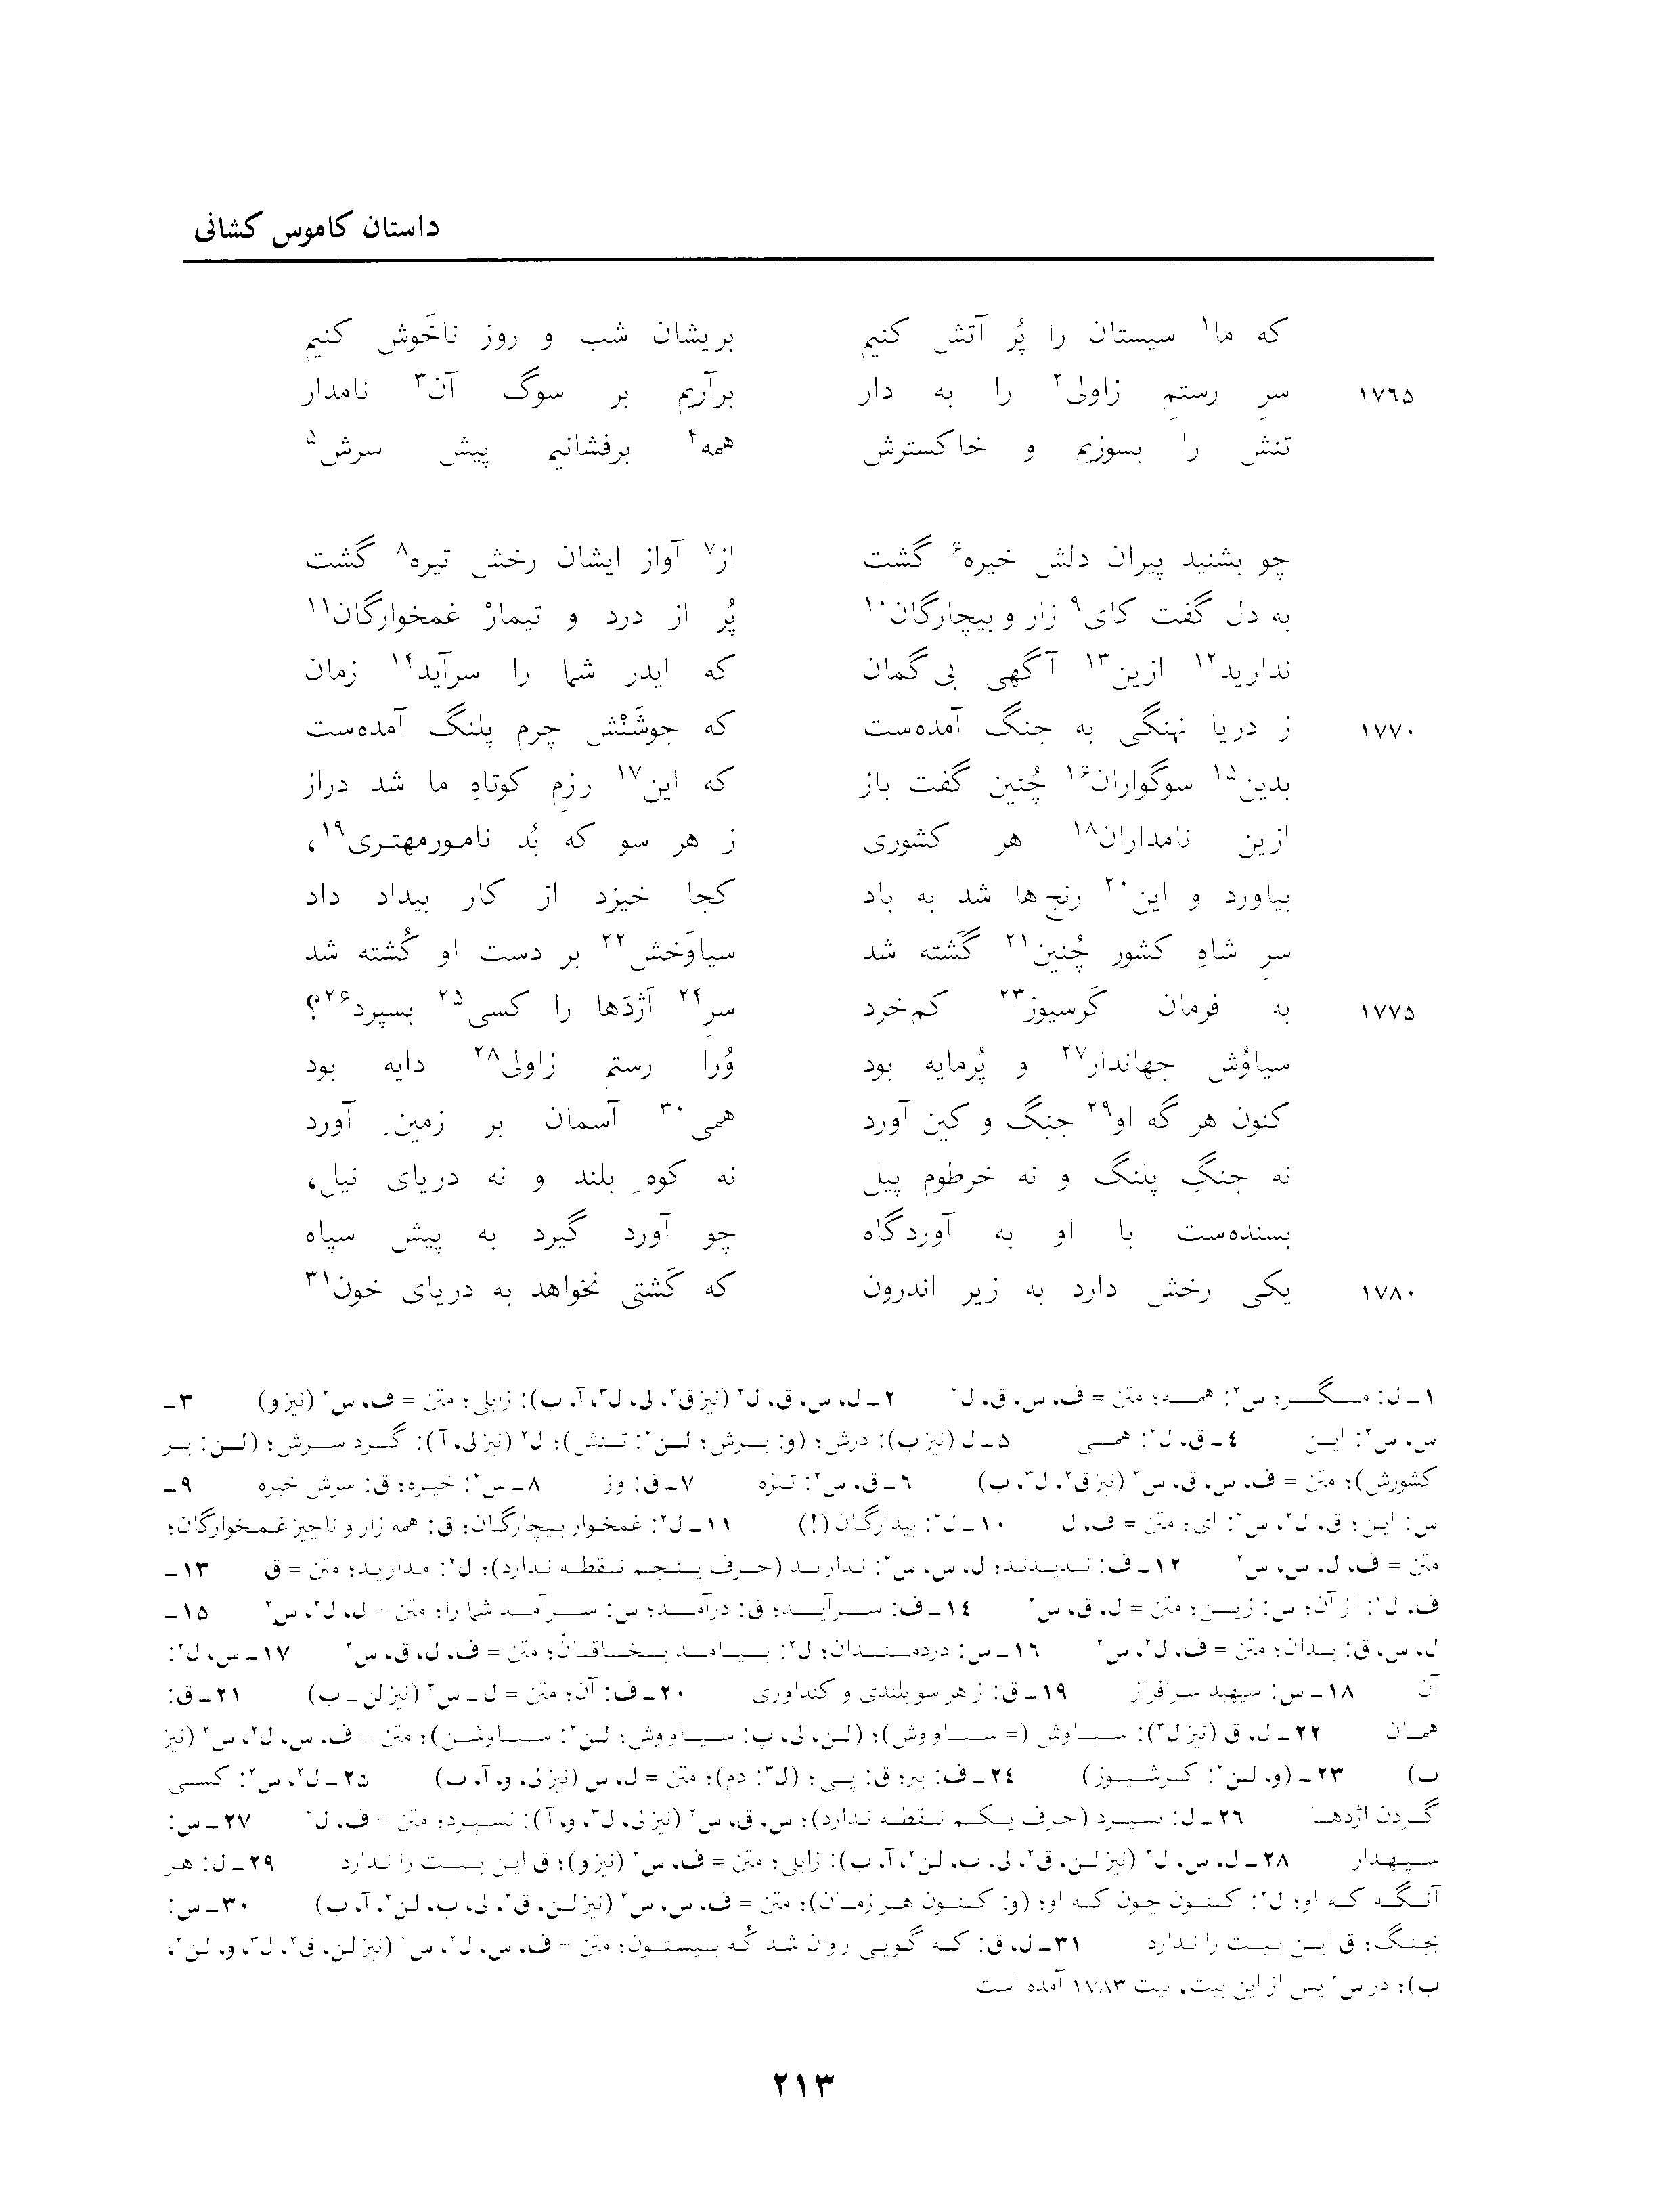 داستان کاموس کشانی
که ما۱ سیستان را پُر آتش کنیم بریشان شب و روز ناخَوش کنیم
۱۷۶۵ سرِ رستمِ زاولی۲ را به دار برآریم بر سوگ آن۳ نامدار
تنش را بسوزیم و خاکسترش همه۴ برفشانیم پیش سرش۵
چو بشنید پیران دلش خیره۶ گشت از۷ آواز ایشان رخش تیره۸ گشت
به دل گفت کای۹ زار و بیچارگان۱۰ پُر از درد و تیمارْ غمخوارگان۱۱
ندارید۱۲ ازین۱۳ آگهی بی‌گمان که ایدر شما را سرآید۱۴ زمان
۱۷۷۰ ز دریا نهنگی به جنگ آمده‌ست که جوشَنْش چرم پلنگ آمده‌ست
بدین۱۵ سوگواران۱۶ چُنین گفت باز که این۱۷ رزمِ کوتاهِ ما شد دراز
ازین نامداران۱۸ هر کشوری ز هر سو که بُد نامورمهتری۱۹،
بیاورد و این۲۰ رنج‌ها شد به باد کجا خیزد از کار بیداد داد
سرِ شاهِ کشور چُنین۲۱ گَشته شد سیاوَخش۲۲ بر دست او کُشته شد
۱۷۷۵ به فرمان گَرسیوز۲۳ کم‌خرد سرِ۲۴ اَژدَها را کسی۲۵ بسپرد۲۶؟
سیاوُش جهاندار۲۷ و پُرمایه بود وُرا رستم زاولی۲۸ دایه بود
کنون هر گه او۲۹ جنگ و کین آورد همی۳۰ آسمان بر زمین آورد
نه جنگِ پلنگ و نه خرطوم پیل نه کوه بلند و نه دریای نیل،
بسنده‌ست با او به آوردگاه چو آورد گیرد به پیش سپاه
۱۷۸۰ یکی رخش دارد به زیر اندرون که کَشتی نخواهد به دریای خون۳۱
۱ـ ل: مـگـر؛ س۲: همـه؛ متن = ف، س، ق، ل۲ ۲ـ ل، س، ق، ل۲ (نیز ق۲، لی، ل۳، آ، ب): زابلی؛ متن = ف، س۲ (نیز و) ۳ـ
س، س۲: ایـن ۴ـ ق، ل۲: همـی ۵ـ ل (نیز پ): درش؛ (و: بـرش؛ لـن۲: تـنش)؛ ل۲ (نیز لی، آ): گـرد سـرش؛ (لـن: بـر
کشورش)؛ متن = ف، س، ق، س۲ (نیز ق۲، ل۳، ب) ۶ـ ق، س۲: تـیزه ۷ـ ق: وز ۸ـ س۲: خیـره؛ ق: سرش خیره ۹ـ
س: ایـن؛ ق، ل۲، س۲: ای؛ متن = ف، ل ۱۰ـ ل۲: بیدارگـان(!) ۱۱ـ ل۲: غمخوار بـیچارگـان؛ ق: همه زار و ناچیز غـمـخوارگان؛
متن = ف، ل، س، س۲ ۱۲ـ ف: نـدیـدنـد؛ ل، س، س۲: نـدارنـد (حـرف پـنـجم نـقطـه نـدارد)؛ ل۲: مـداریـد؛ متن = ق ۱۳ـ
ف، ل۲: از آن؛ س: زیـن؛ متن = ل، ق، س۲ ۱۴ـ ف: سـرآیـد؛ ق: درآمـد؛ س: سـرآمـد شما را؛ متن = ل، ل۲، س۲ ۱۵ـ
ل، س، ق: بـدان؛ متن = ف، ل۲، س۲ ۱۶ـ س: دردمـنـدان؛ ل۲: بـیـامـد بـخـاقـان؛ متن = ف، ل، ق، س۲ ۱۷ـ س، ل۲:
آن ۱۸ـ س: سپهبد سـرافراز ۱۹ـ ق: ز هر سو بلندی و کنداوری ۲۰ـ ف: آن؛ متن = ل ـ س۲ (نیز لن ـ ب) ۲۱ـ ق:
همـان ۲۲ـ ل، ق (نیز ل۳): سـیاوش (= سـیـاووش)؛ (لـن، لی، پ: سـیـاووش؛ لـن۲: سـیاوشـن)؛ متن = ف، س، ل۲، س۲ (نیز
ب) ۲۳ـ (و، لـن۲: کـرشـیـوز) ۲۴ـ ف: ببر؛ ق: پـی؛ (ل۳: دم)؛ متن = ل، س (نیز لی، و، آ، ب) ۲۵ـ ل۲، س۲: کسـی
گـردن اژدهـا ۲۶ـ ل: سـپـرد (حـرف یـکـم نـقطـه نـدارد)؛ س، ق، س۲ (نیز لی، ل۳، و، آ): نـسـپـرد؛ متن = ف، ل۲ ۲۷ـ س:
سـپـهـدار ۲۸ـ ل، س، ل۲ (نیز لـن، ق۲، لی، ب، لـن۲، آ، ب): زابلی؛ متن = ف، س۲ (نیز و)؛ ق ایـن بـیـت را نـدارد ۲۹ـ ل: هـر
آنـگـه کـه او؛ ل۲: کـنـون چـون کـه او؛ (و: کـنـون هـر زمـان)؛ متن = ف، س، س۲ (نیز لـن، ق۲، لی، پ، لـن۲، آ، ب) ۳۰ـ س:
بجـنـگ؛ ق ایـن بـیـت را نـدارد ۳۱ـ ل، ق: کـه گـویـی روان شـد کُـه بـیـسـتـون؛ متن = ف، س، ل۲، س۲ (نیز لن، ق۲، ل۳، و، لـن۲،
ب)؛ در س۲ پس از این بیت، بیت ۱۷۸۳ آمده است
۲۱۳